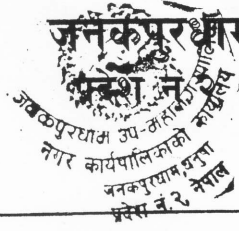 जनकपुरधाम
प्रदेश नं
जनकपुरधाम उप-महानगरपालिका
नगर कार्यपालिकाको कार्यालय
जनकपुरधाम, धनुषा
प्रदेश नं. २, नेपाल